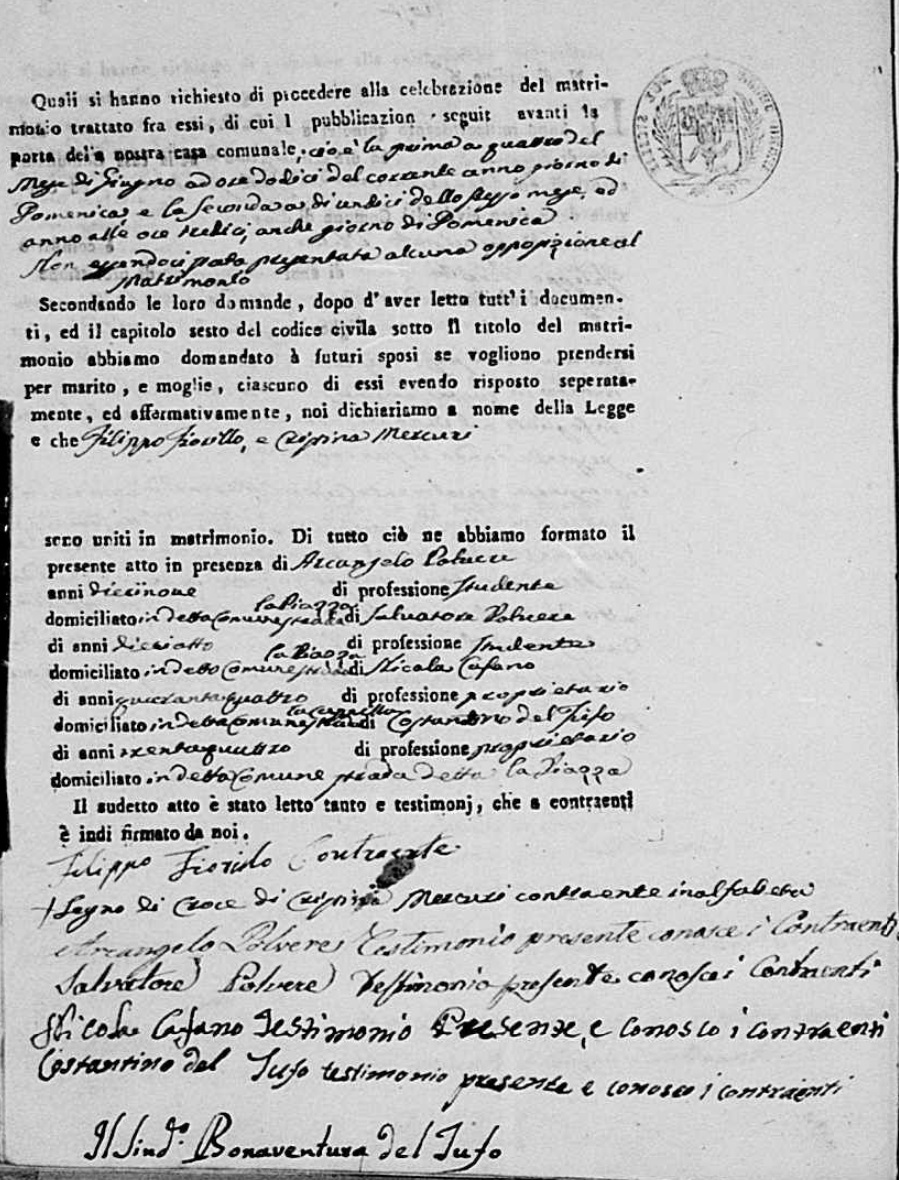 Quali si hanno richiesto di procedere alla celebrazione del matri-
monio trattato fra essi, di cui l pubblicazion seguit avanti la
porta del'a nostra casa comunale, cio è la prima a quattro del
Mese di Giugno ad ore dodici del corrente anno giorno di
Domenica, e la Seconda a di undici dello stesso mese, ed
anno alle ore tredici, anche giorno di Domenica
Non essendoci stata presentata alcuna opposizione al
Matrimonio
Secondando le loro domande, dopo d' aver letto tutt' i documen-
ti, ed il capitolo sesto del codice civila sotto il titolo del matri-
monio abbiamo domandato à futuri sposi se vogliono prendersi
per marito, e moglie, ciascuno di essi evendo risposto seperata-
mente, ed affarmativamente, noi dichiariamo a nome della Legge
e che Filippo Fiorillo, e Crispina Mercuri
sono uniti in matrimonio. Di tutto ciò ne abbiamo formato il
presente atto in presenza di Arcangelo Polvere
anni dicinove di professione Studente
domiciliato in detta Comune strada la Piazza di Salvatore Polvere
di anni diciotto di professione Studente
domiciliato in detto Comune strada la Piazza di Nicola Cafano
di anni quarantaquattro di professione proprietario
domiciliato in detta Comune strada di Costantino del Tufo
di anni trentaquattro di professione proprietario
domiciliato in detta Comune strada detta la Piazza
Il sudetto atto è stato letto tanto e testimonj, che a contraenti
è indi firmato da noi.
Filippo Fiorilo Contraente
+ Segno di Croce di Crispina Mercuri contraente inalfabeta
Arcangelo Polvere Testimonio presente conosce i Contraenti
Salvatore Polvere Testimonio presente conosce i Contraenti
Nicola Cafano Testimonio Presente, e conosco i contraenti
Costantino del Tufo testimonio presente e conosco i contraienti
Il Sind.º Bonaventura del Tufo